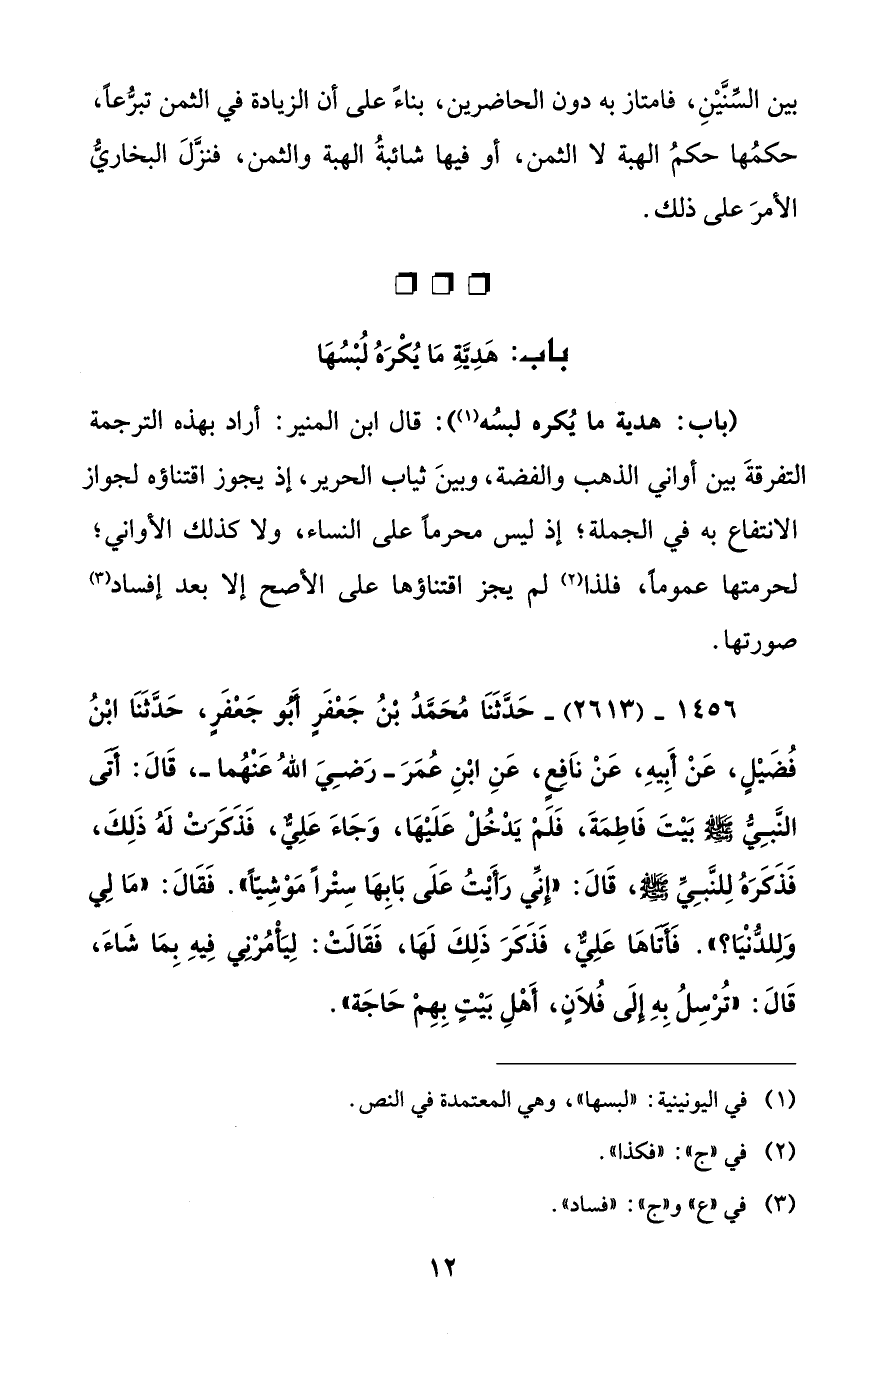 بين السِّنَّيْنِ، فامتاز به دون الحاضرين، بناءً على أن الزيادة في الثمن تبرُّعاً،
حكمُها حكمُ الهبة لا الثمن، أو فيها شائبةُ الهبة والثمن، فنزَّلَ البخاريُّ
الأمرَ على ذلك.
باب: هَدِيَّةِ مَا يُكْرَهُ لُبْسُهَا
(باب: هدية ما يُكره لبسُه(١)): قال ابن المنير: أراد بهذه الترجمة
التفرقةَ بين أواني الذهب والفضة، وبينَ ثياب الحرير، إذ يجوز اقتناؤه لجواز
الانتفاع به في الجملة؛ إذ ليس محرماً على النساء، ولا كذلك الأواني؛
لحرمتها عموماً، فلذا(٢) لم يجز اقتناؤها على الأصح إلا بعد إفساد(٣)
صورتها.
١٤٥٦ ـ (٢٦١٣) ـ حَدَّثَنَا مُحَمَّدُ بْنُ جَعْفَرٍ أَبُو جَعْفَرٍ، حَدَّثَنَا ابْنُ
فُضَيْلٍ، عَنْ أَبِيهِ، عَنْ نَافِعٍ، عَنِ ابْنِ عُمَرَ ـ رَضِيَ اللهُ عَنْهُما ـ، قَالَ: أَتَى
النَّبِيُّ ﷺ بَيْتَ فَاطِمَةَ، فَلَمْ يَدْخُلْ عَلَيْهَا، وَجَاءَ عَلِيٌّ، فَذَكَرَتْ لَهُ ذَلِكَ،
فَذَكَرَهُ لِلنَّبِيِّ ﷺ، قَالَ: «إِنِّي رَأَيْتُ عَلَى بَابِهَا سِتْراً مَوْشِيّاً». فَقَالَ: «مَا لِي
وَلِلدُّنْيَا؟». فَأَتَاهَا عَلِيٌّ، فَذَكَرَ ذَلِكَ لَهَا، فَقَالَتْ: لِيَأْمُرْنِي فِيهِ بِمَا شَاءَ،
قَالَ: «تُرْسِلُ بِهِ إِلَى فُلاَنٍ، أَهْلِ بَيْتٍ بِهِمْ حَاجَة».
(١) في اليونينية: «لبسها»، وهي المعتمدة في النص.
(٢) في «ج»: «فكذا».
(٣) في «ع» و«ج»: «فساد».
١٢